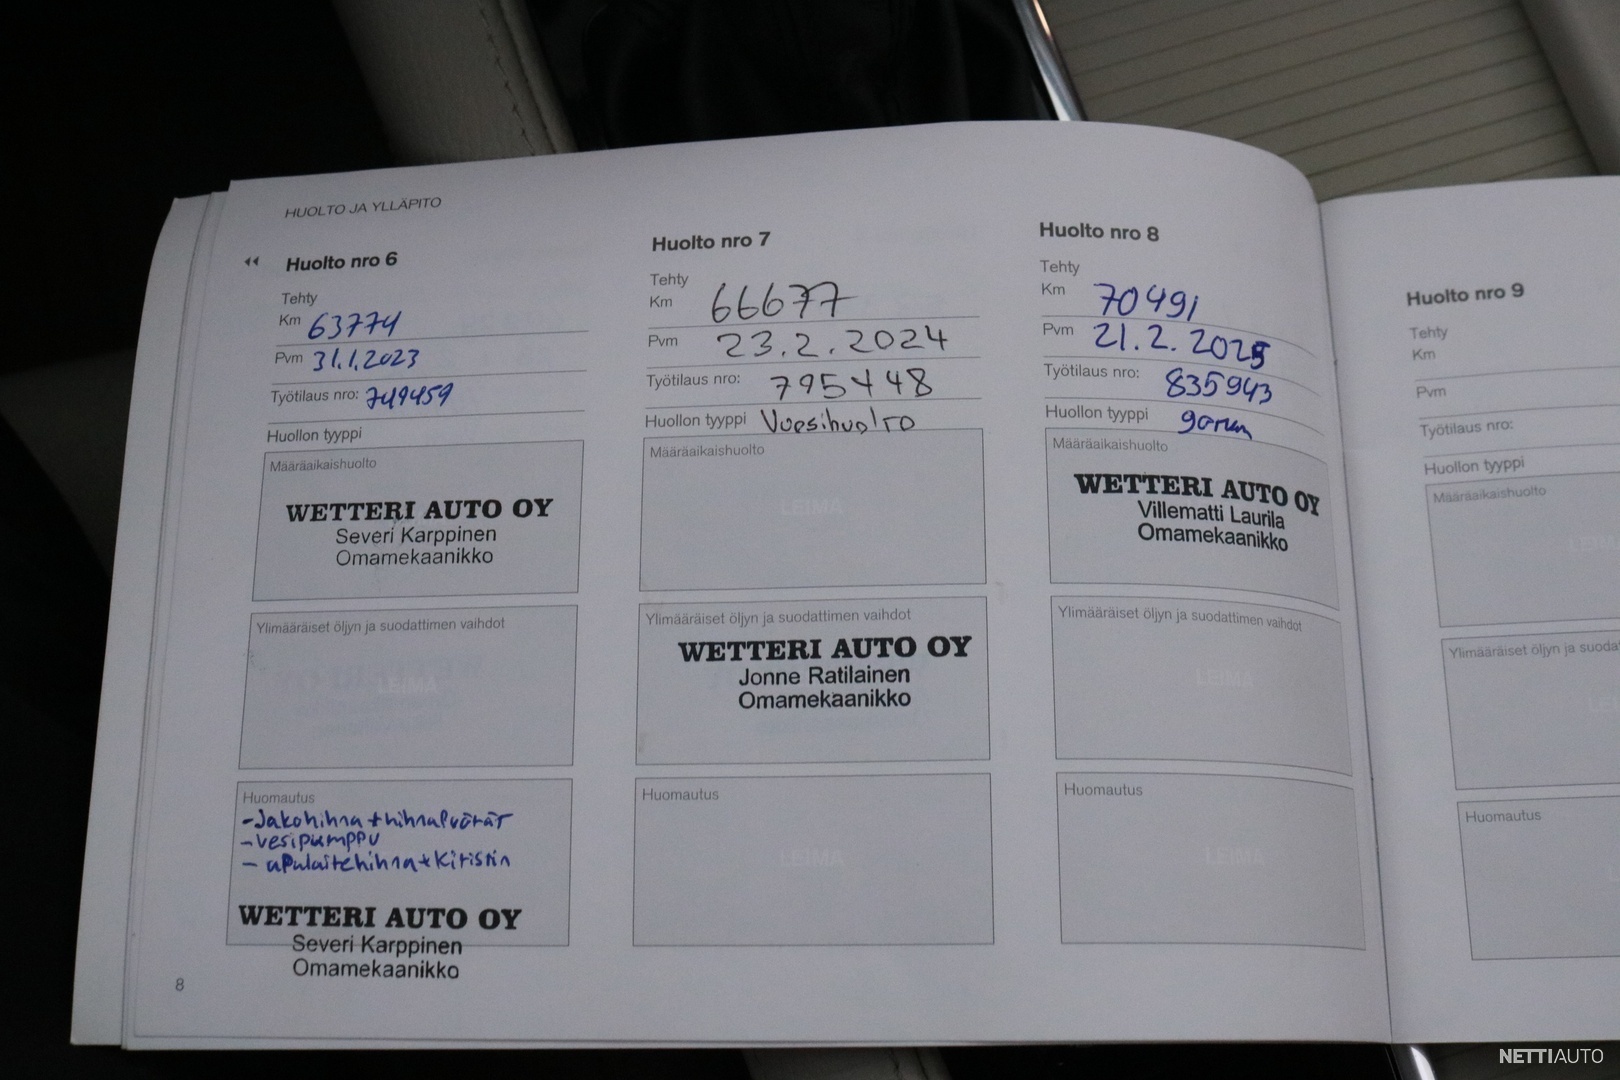 HUOLTO JA YLLÄPITO
Huolto nro 6
Tehty
Km 63774
Pvm 31.1.2023
Työtilaus nro: 749459
Huollon tyyppi
Määräaikaishuolto
WETTERI AUTO OY
Severi Karppinen
Omamekaanikko
Ylimääräiset öljyn ja suodattimen vaihdot
LEIMA
Huomautus
-Jakohihna+hihnapyörät
-vesipumppu
- apulaitehihna+kiristin
WETTERI AUTO OY
Severi Karppinen
Omamekaanikko
8
Huolto nro 7
Tehty
Km 66677
Pvm 23.2.2024
Työtilaus nro: 795448
Huollon tyyppi Vuosihuolto
Määräaikaishuolto
LEIMA
Ylimääräiset öljyn ja suodattimen vaihdot
WETTERI AUTO OY
Jonne Ratilainen
Omamekaanikko
Huomautus
LEIMA
Huolto nro 8
Tehty
Km 70491
Pvm 21.2.2025
Työtilaus nro: 835943
Huollon tyyppi
Määräaikaishuolto
WETTERI AUTO OY
Villematti Laurila
Omamekaanikko
Ylimääräiset öljyn ja suodattimen vaihdot
LEIMA
Huomautus
LEIMA
Huolto nro 9
Tehty
Km
Pvm
Työtilaus nro:
Huollon tyyppi
Määräaikaishuolto
Ylimääräiset öljyn ja suoda
Huomautus
NETTIAUTO